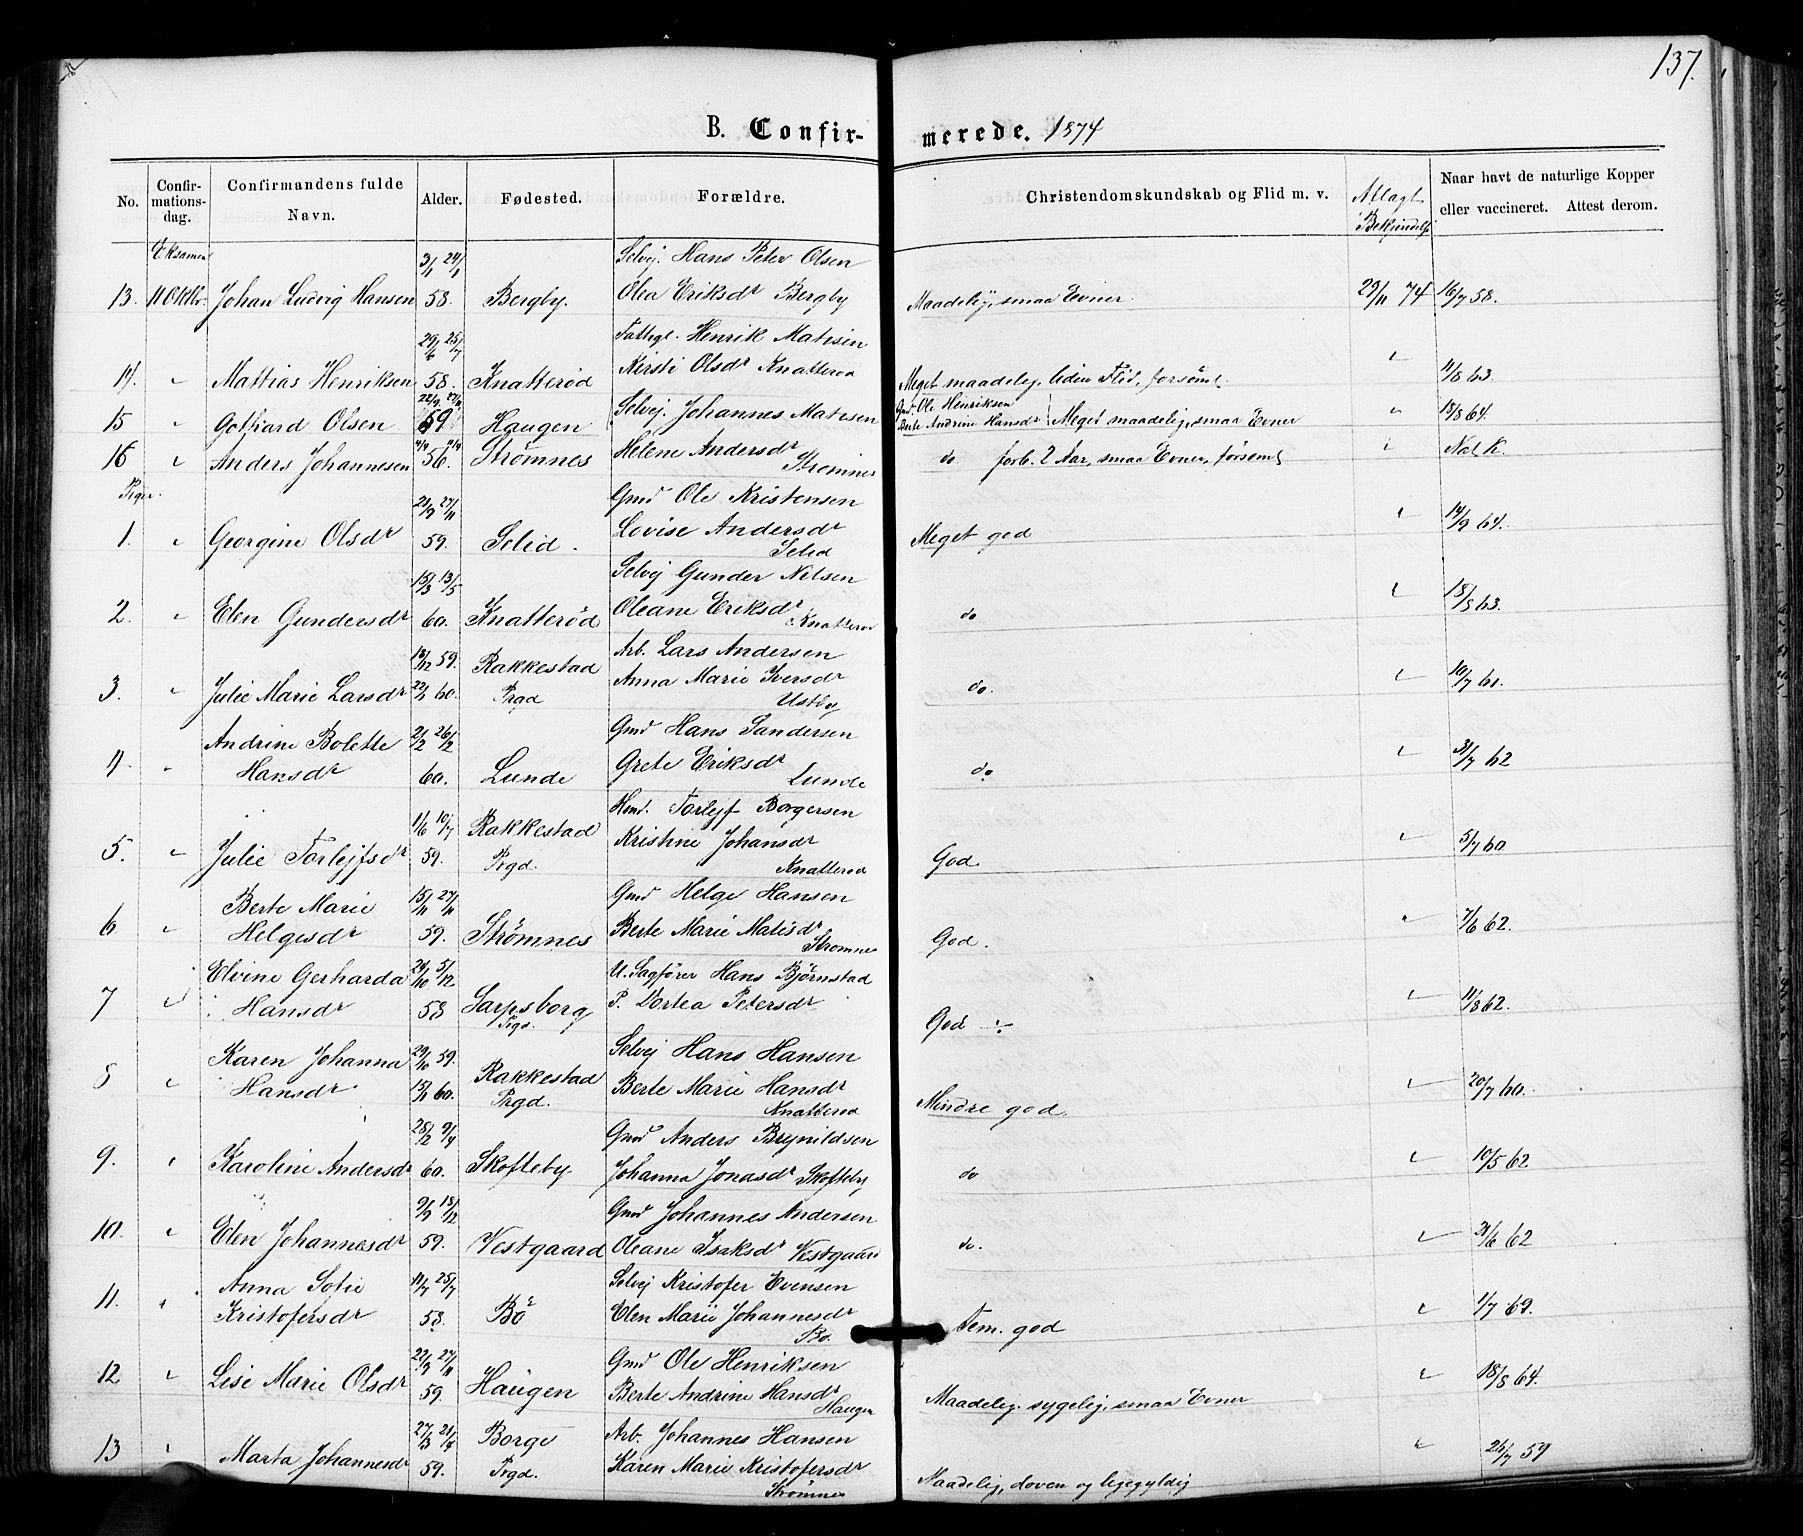 137.
B. Confirmerede. 1874
No. Confirmationsdag. Confirmandens fulde Navn. Alder. Fødested. Forældre. Christendomskundskab og Flid m. v. Aflagt Bekjendelse Naar havt de naturlige Kopper eller vaccineret. Attest derom.
Eksamen 3/1 24/1 Selvej. Hans Peter Olsen
13. 11 Oktbr. Johan Ludvig Hansen 58. Bergby. Olea Eriksdr Bergby Maadelig, smaa Evner. 29/11 74 16/7 58.
29/6 25/7 Fattigl. Henrik Matisen
14. " Mattias Henriksen 58. Knatterød Kirsti Olsdr Knatterød Meget maadelig, liden Flid, forsømt. " 11/8 63.
22/9 27/11 Selvej. Johannes Matisen Gmd. Ole Henriksen
15 " Gothard Olsen 59 Haugen Berte Andrine Hansdr Meget maadelig, smaa Evner " 18/8 64.
16 " Anders Johannesen 56. Strømnes Helene Andersdr Strømnes do forb. 2 Aar, smaa Evner, forsømt " Nat. K.
Piger. 21/9 27/11 Gmd Ole Kristensen
1. " Georgine Olsdr 59. Selid. Lovise Andersdr Selid Meget god " 14/9 64.
15/3 13/5 Selvej Gunder Nilsen
2. " Elen Gundersdr 60. Knatterød Oleane Eriksdr Knatterød do " 18/8 63.
18/12 59. Rakkestad Arb. Lars Andersen
3. " Julie Marie Larsdr 22/1 60. Prgd Anna Marie Iversdr Ustby do. " 10/7 61.
Andrine Bolette 21/2 26/2 Gmd Hans Sandersen
4 " Hansdr 60. Lunde Grete Eriksdr Lunde do " 31/7 62
11/6 10/7 Rakkestad Hmd. Torlejf Borgersen
5. " Julie Torlejfsdr 59. Prgd. Kristine Johansdr Knatterød God. " 5/7 60
Berte Marie 15/11 27/11 Gmd Helge Hansen
6 " Helgesdr 59. Strømnes Berte Marie Matisdr Strømnes God. " 7/6 62.
Elvine Gerharda 29/10 5/12 U. Sagfører Hans Bjørnstad
7 " Hansdr 58 Sarpsborg Prgd. P. Dortea Petersdr God ÷ " 11/8 62.
Karen Johanna 29/10 59. Rakkestad Selvej Hans Hansen
8 " Hansdr 15/1 60. Prgd. Berte Marie Hansdr Knatterød Mindre god. " 20/7 60.
28/2 9/4 Gmd Anders Brynildsen
9. " Karoline Andersdr 60. Skofteby. Johanna Jonasdr Skofteby do " 10/5 62
9/9 18/12 Gmd Johannes Andersen
10. " Elen Johannesdr 59. Vestgaard Oleane Isaksdr Vestgaard do. " 21/6 62
Anna Sofie 11/7 25/7 Selvej Kristofer Evensen
11. " Kristofersdr 58. Bø Elen Marie Johannesdr Bø. Tem. god " 1/7 69.
22/9 27/11 Gmd Ole Henriksen
12 " Lise Marie Olsdr 59. Haugen Berte Andrine Hansdr Haugen Maadelig. sygelig, smaa Evner " 18/8 64.
27/3 21/4 Borge Arb. Johannes Hansen
13 " Marta Johannesdr 59. Prgd. Karen Marie Kristofersdr Strømnes Maadelig, doven og ligegyldig " 26/7 59